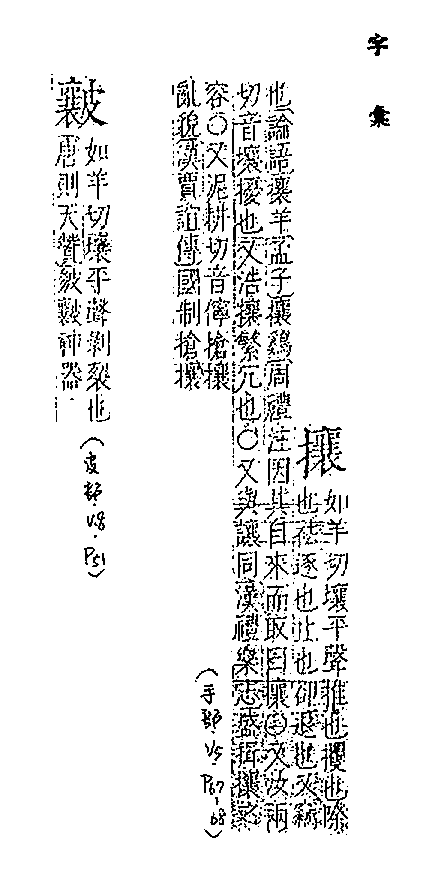 字彙
攘
如羊切壤平聲推也攘也除
也袪逐也止也卻退也又竊
也論語攘羊孟子攘鷄周禮注因其自來而取曰攘〇又汝兩
切音壤擾也又浩攘繁冗也〇又與讓同漢禮樂志盛揖攘之
容〇又泥耕切音儜搶攘
亂貌漢賈誼傳國制搶攘
(手部·V5·P67-68)
如羊切壤平聲剝裂也
唐則天贊 神器
(皮部·V8·P51)